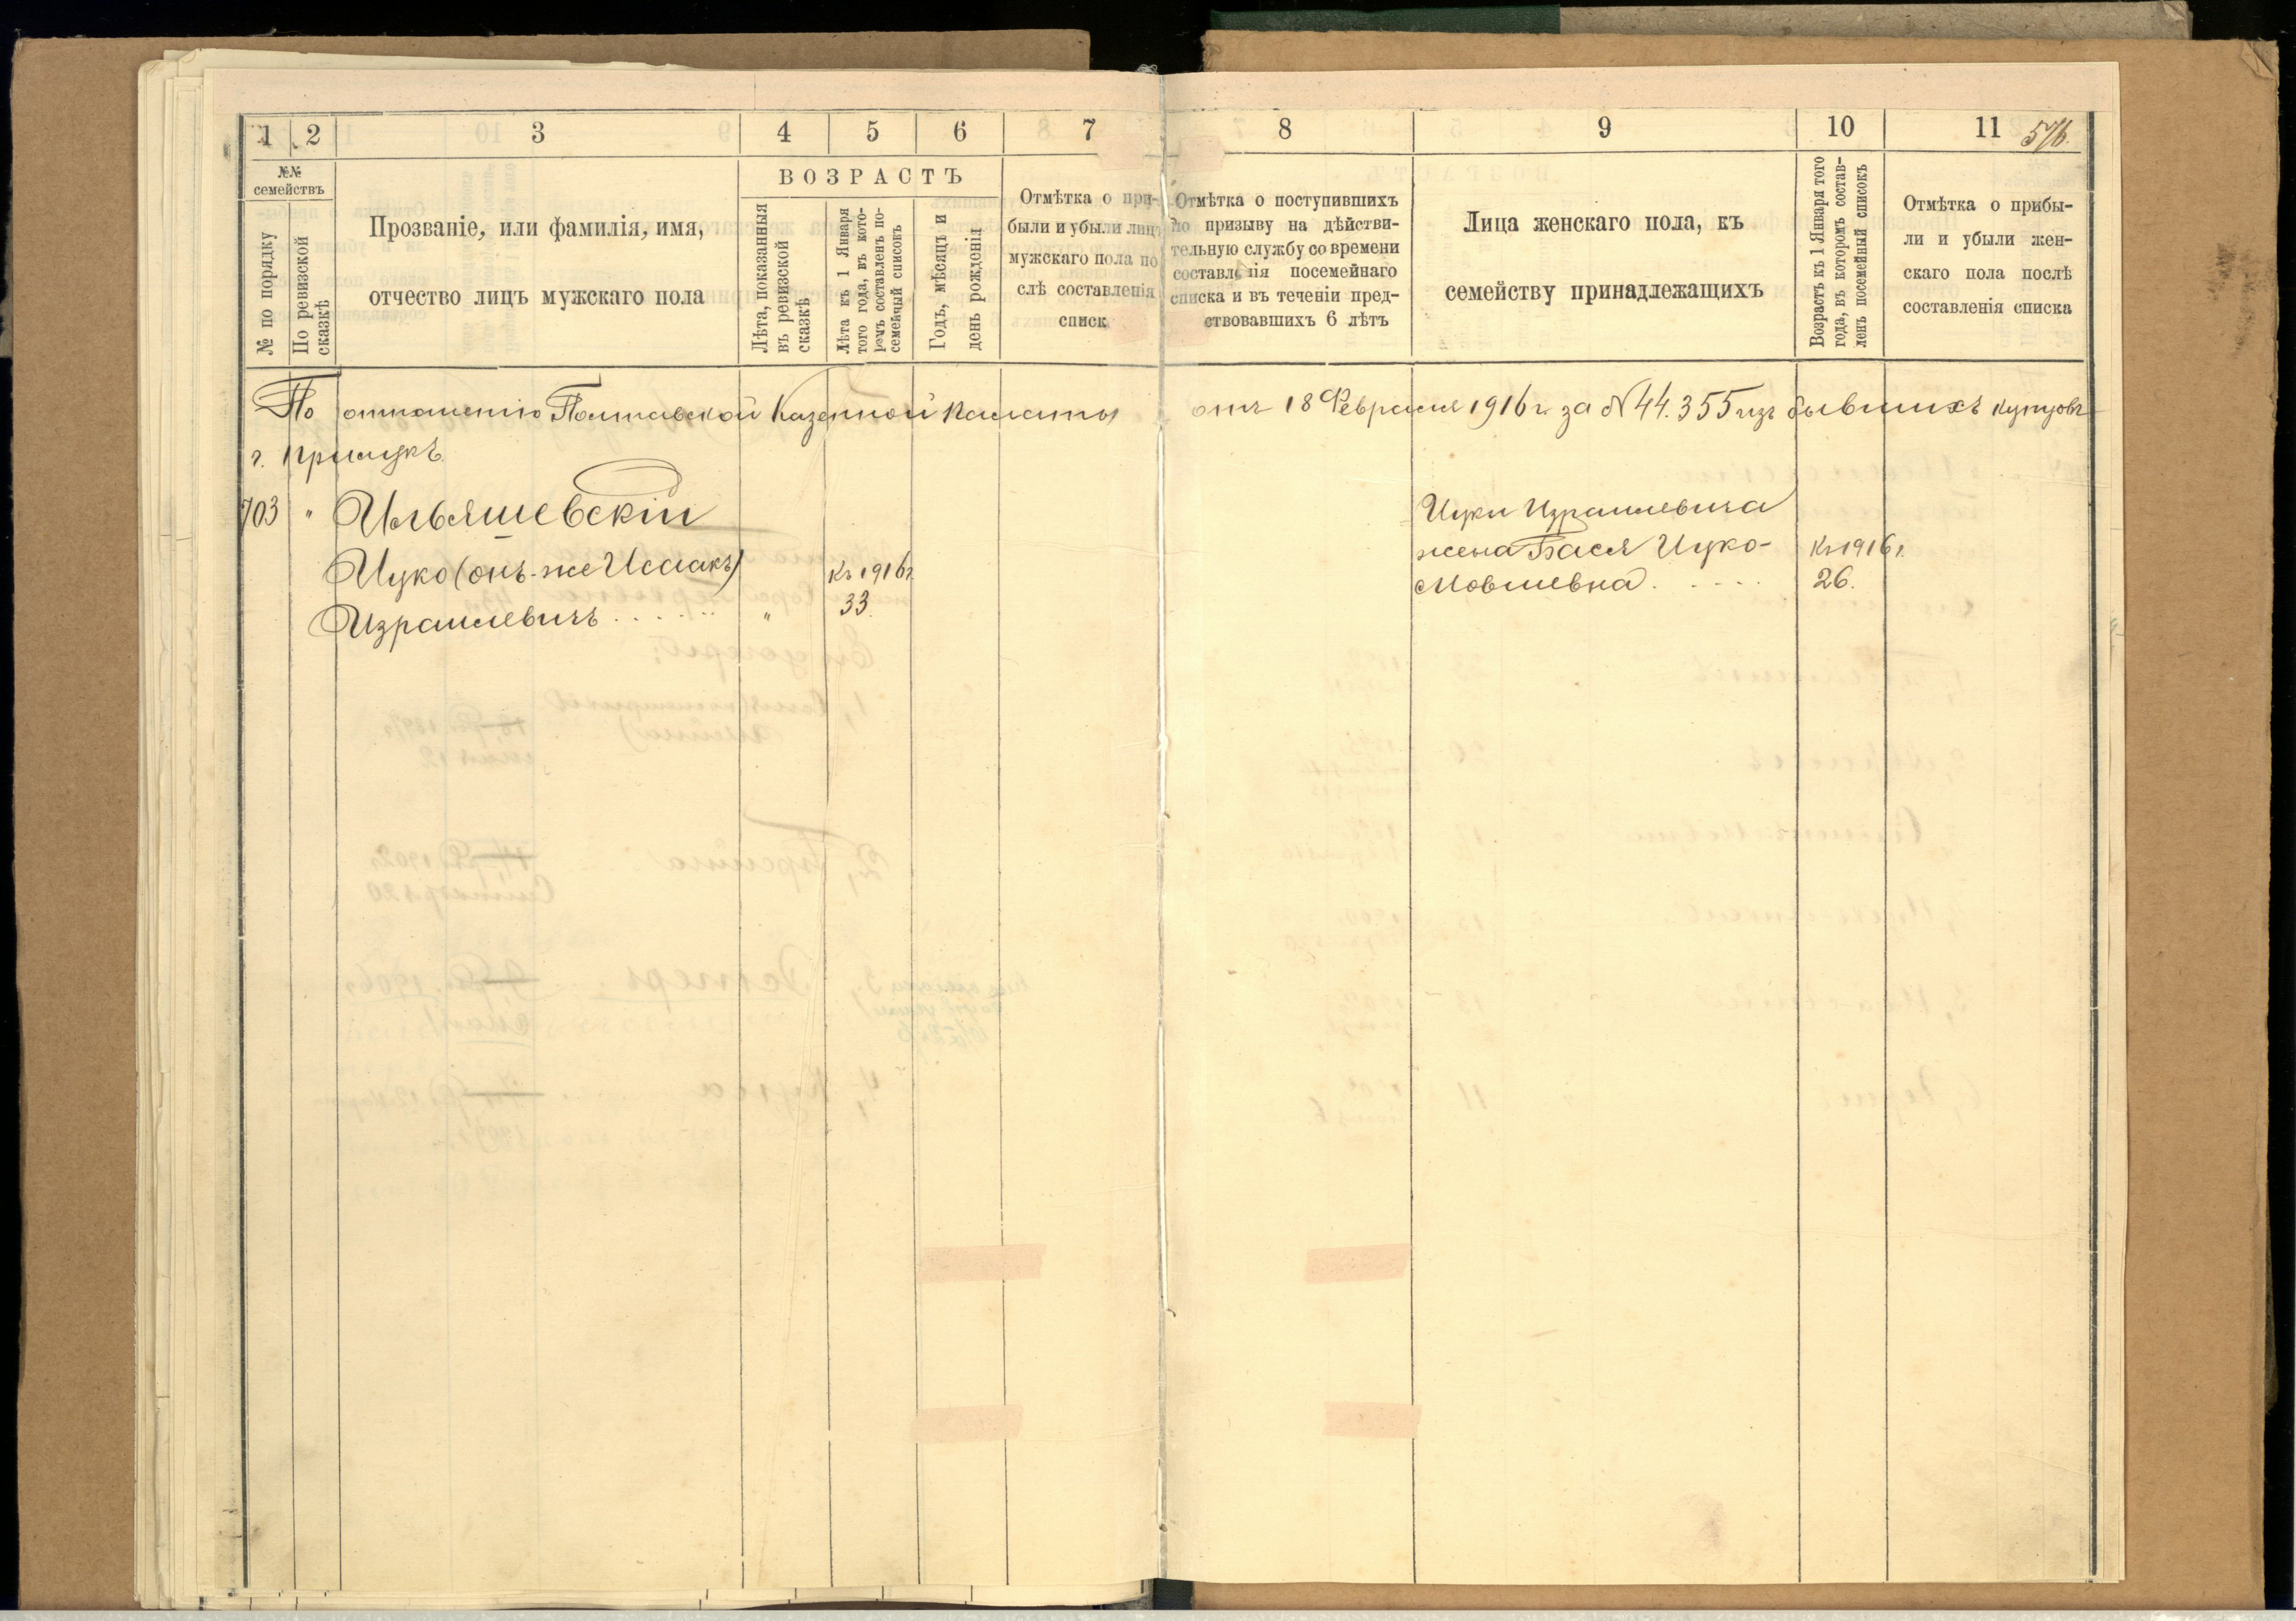 1 2 3 4 5 6 7 8 9 10 11
576.
№№ семействъ
№ по порядку
По ревизской сказкѣ
Прозваніе, или фамилія, имя,
отчество лицъ мужскаго пола
ВОЗРАСТЪ
Лѣта, показанныя
въ ревизской
сказкѣ
Лѣта къ 1 Января
того года, въ кото-
ромъ составленъ по-
семейный списокъ
Годъ, мѣсяцъ и
день рожденія
Отмѣтка о при-
были и убыли лицъ
мужскаго пола по
слѣ составленія
списк
Отмѣтка о поступившихъ
по призыву на дѣйстви-
тельную службу со времени
составленія посемейнаго
списка и въ теченіи пред-
ствовавшихъ 6 лѣтъ
Лица женскаго пола, къ
семейству принадлежащихъ
Возрастъ къ 1 Января того
года, въ которомъ состав-
ленъ посемейный списокъ
Отмѣтка о прибы-
ли и убыли жен-
скаго пола послѣ
составленія списка
По отношенію Полтавской Казенной Палаты отъ 18 Февраля 1916 г. за № 44.355 изъ бывшихъ купцовъ
г. Прилукъ.
703 " Ильяшевскій
Ицко (онъ-же Исаакъ) Къ 1916 г.
Израилевичъ . . . . . . " 33.
Ицки Израилевича
жена Бася Ицко- Къ 1916 г.
Мовшевна . . . . . 26.